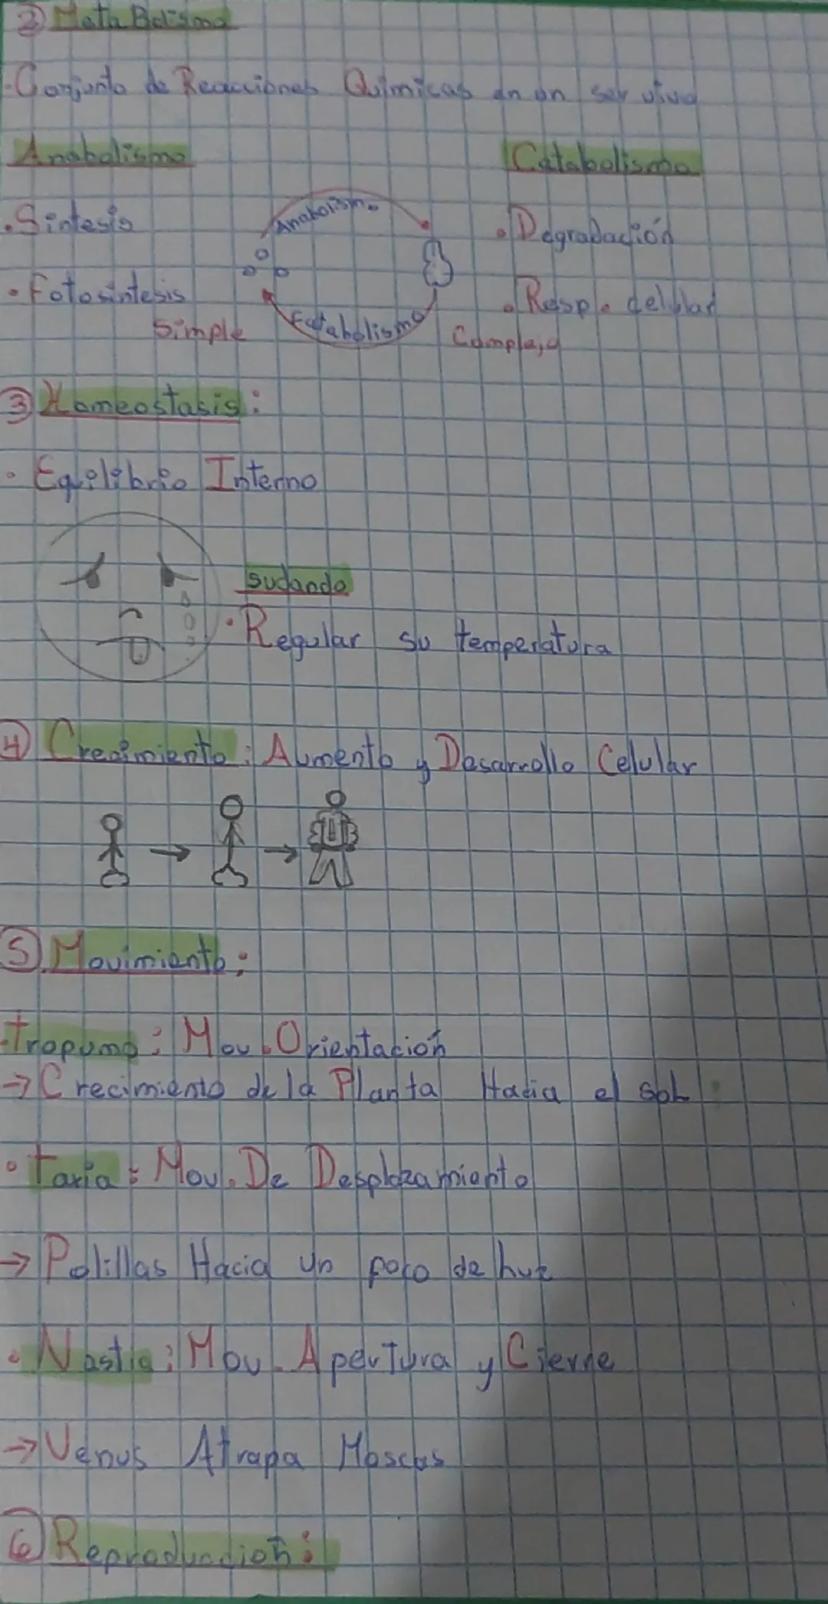 ② MetaBolismo
·Conjunto de Reacciones Químicas en un ser vivo
Anabolismo
Catabolismo
·Síntesis
Anabolismo
·Degradación
·Fotosíntesis
·Resp. celular
Simple
Catabolismo
Compleja
③ Homeostasis:
·Equilibrio Interno
sudando
·Regular su temperatura
④ Crecimiento: Aumento y Desarrollo Celular
⑤ Movimiento:
·Mov. Orientación
→ Crecimiento de la Planta Hacia el sol
·Taxia: Mov. De Desplazamiento
→ Polillas Hacia un de
·Nastia: Mov. Apertura y Cierre
→ Venus Atrapa Moscas
⑥ Reproducción: